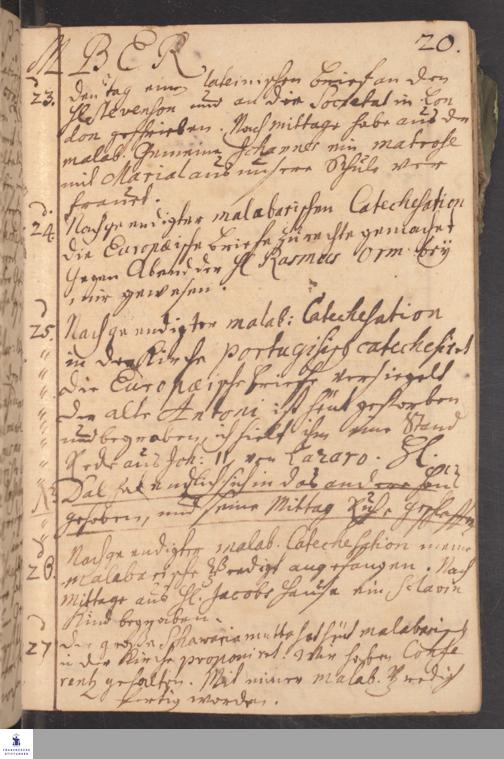 MBER 20.
23. den tag einen lateinischen brieff an den
H. Stevenson und an die Societät in Lon
don geschrieben. Nachmittage habe aus der
malab. Gemeine Johannes ein matrose
mit Maria aus unsere Schule ver
trauet.
24. Nachgeendigter malabarischen Catechesation
die Europæische brieffe zu rechte gemachet
gegen Abend der H. Rasmus Orm bey
mir gewesen.
25. Nachgeendigter malab: Catechesation
in der Kirche portugisisch catechesiret
die Europæische brieffe versiegelt
der alte Antoni ist heut gestorben
und begraben, ich hielt ihm eine Stand
Rede aus Joh: 11 von Lazaro. H.
Dal hat endlich sich in das andere Haus
gehoben, und seine Mittag Ruhe geschaffen
26. Nachgeendigter malab. Catechesation meine
malabarische Predigt angefangen. Nach
mittage aus H. Jacobs Hause ein Sclavin
Kind begraben.
27. der große Schawrimuttu hat heut malabarisch
in der Kirche proponiret. Wir haben Confe
rentz gehalten. Mit meiner malab. Predigt
fertig worden.
FRANCKESCHE
STIFTUNGEN